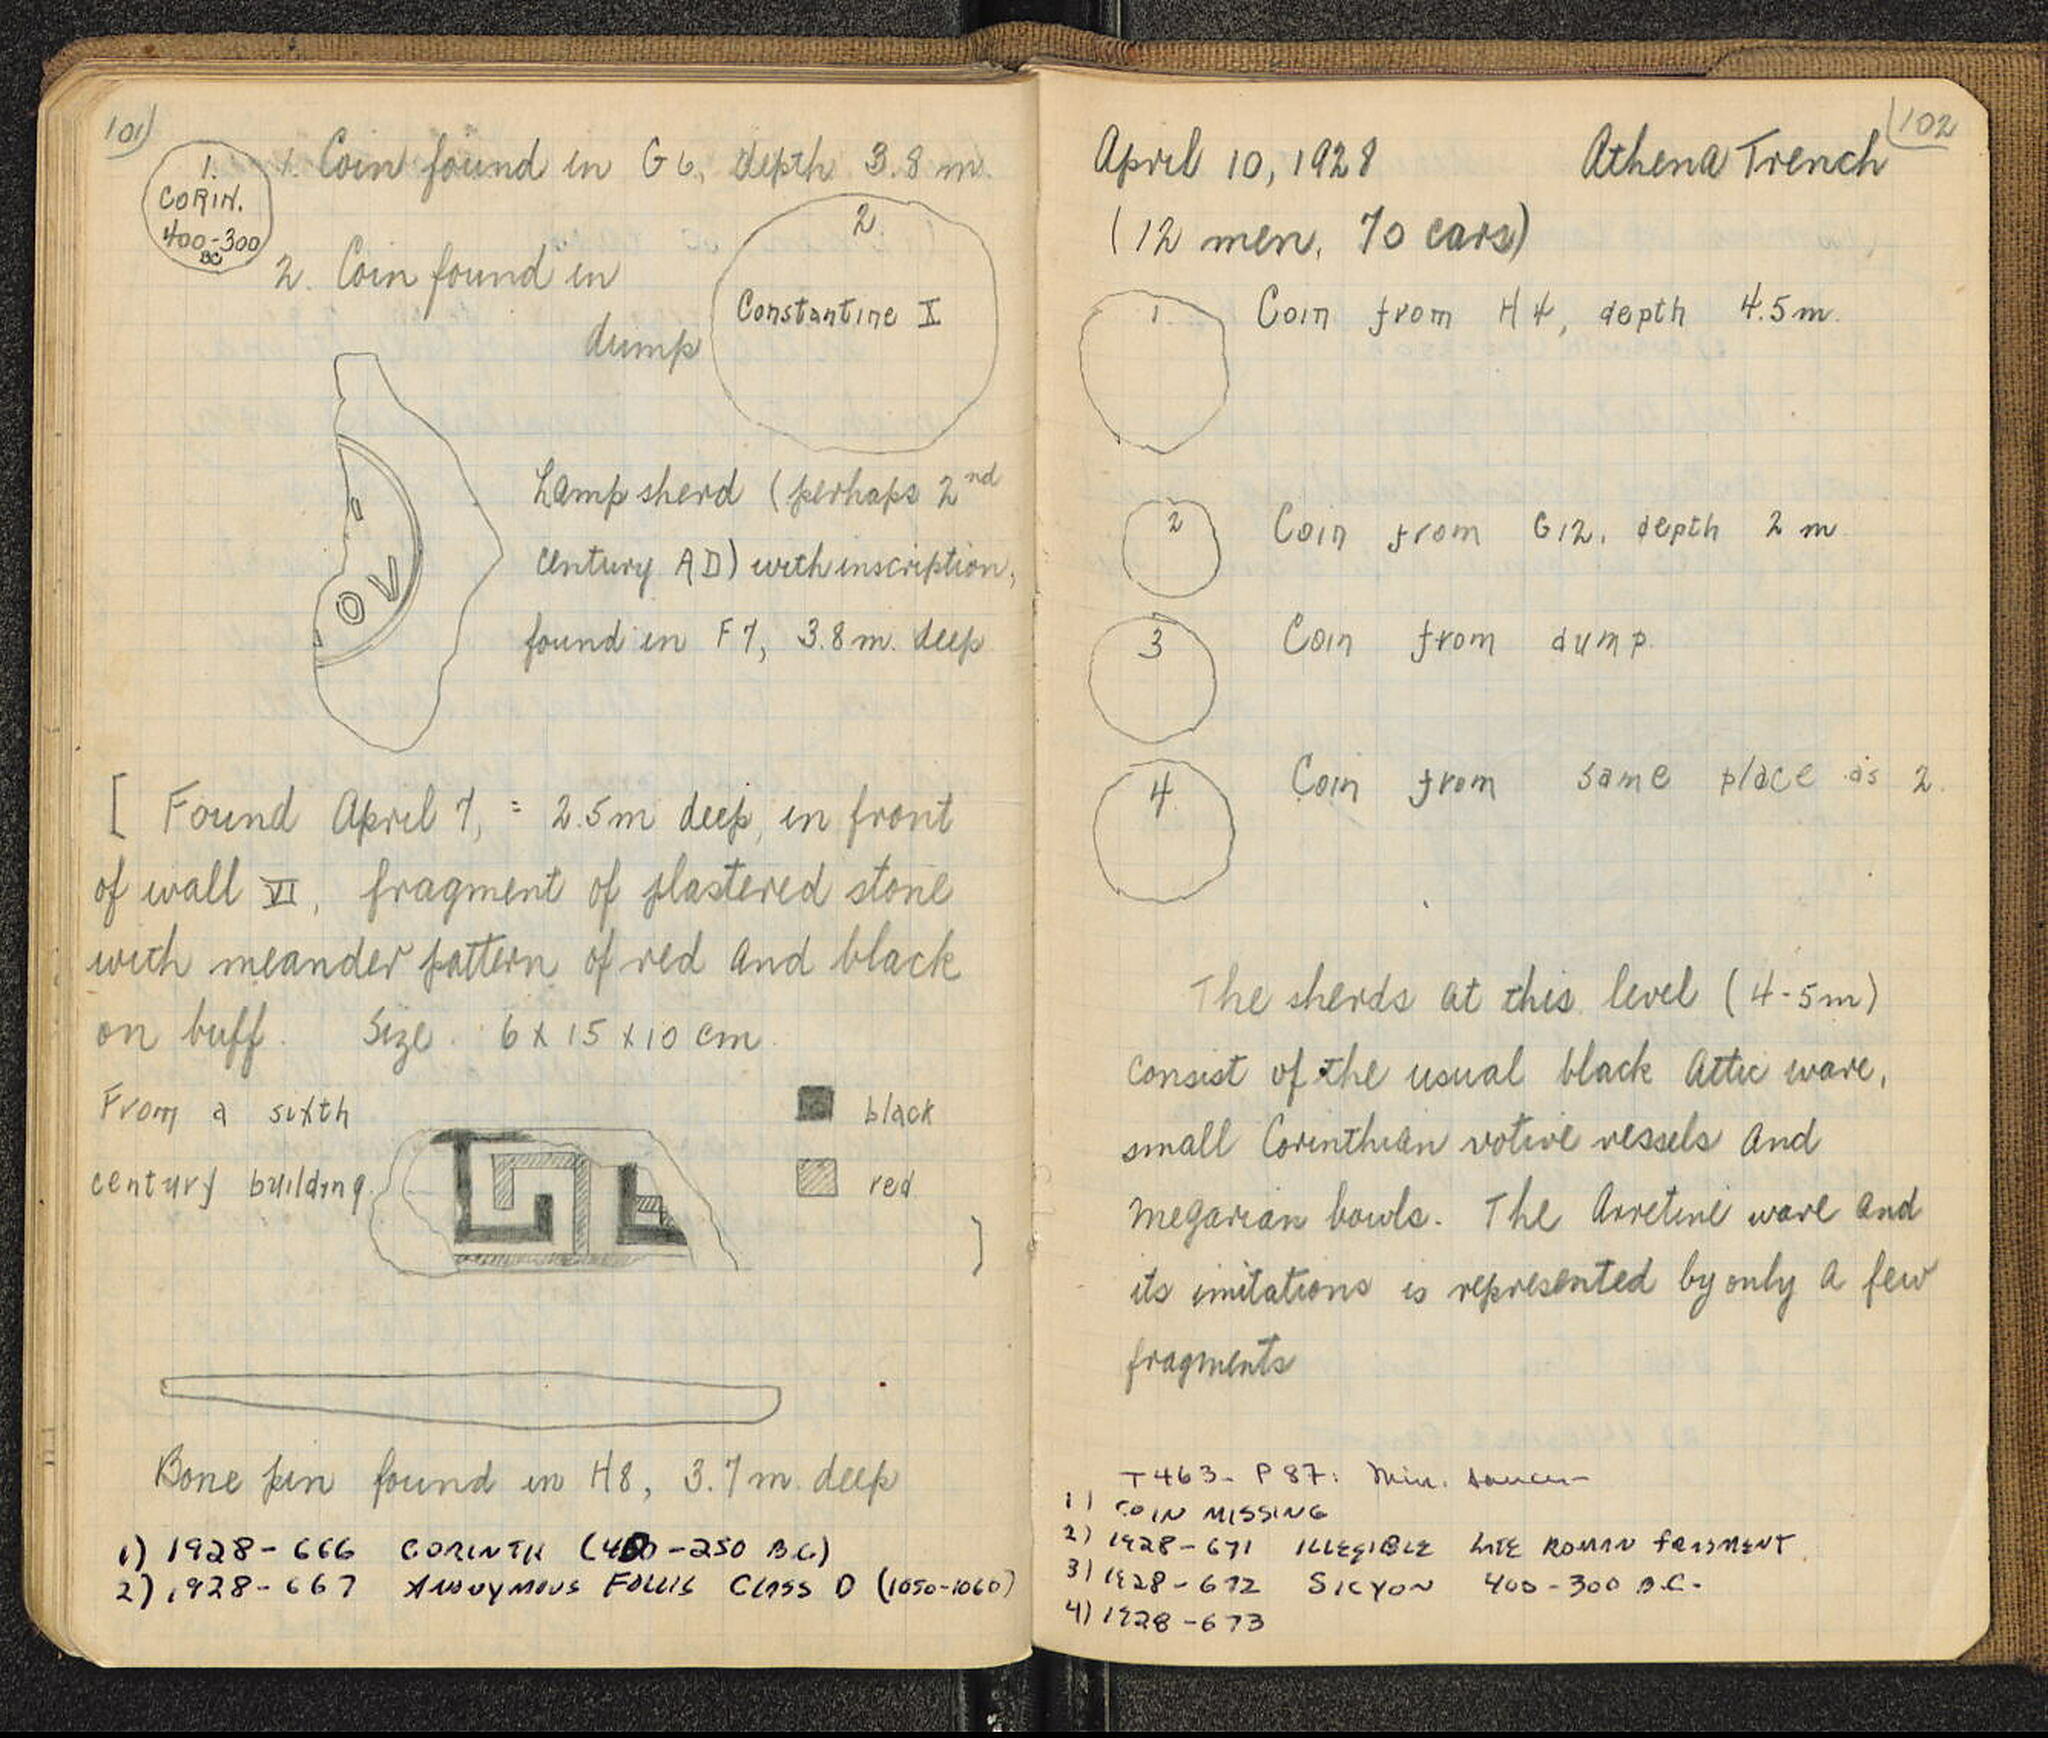 101)
1.
CORIN.
400-300
BC
1. Coin found in G6, depth 3.8 m.
2
Constantine X
2. Coin found in
dump
Lamp sherd (perhaps 2nd
century AD) with inscription,
found in F7, 3.8 m. deep
OV
[ Found April 7, = 2.5m deep, in front
of wall VI, fragment of plastered stone
with meander pattern of red and black
on buff. Size. 6 x 15 x 10 cm.
From a sixth
century building.
black
red
]
Bone pin found in H8, 3.7 m. deep
1) 1928-666 CORINTH (400-250 B.C)
2) 1928-667 ANONYMOUS FOLLIS CLASS D (1050-1060)
(102
April 10, 1928 Athena Trench
(12 men, 70 cars)
1 Coin from H4, depth 4.5m.
2 Coin from G12, depth 2 m
3 Coin from dump.
4 Coin from same place as 2.
The sherds at this level (4-5m)
consist of the usual black Attic ware,
small Corinthian votive vessels and
Megarian bowls. The Arretine ware and
its imitations is represented by only a few
fragments
T463- P 87: Min. saucer
1) COIN MISSING
2) 1928-671 ILLEGIBLE LATE ROMAN FRAGMENT.
3) 1928-672 SICYON 400-300 B.C.
4) 1928-673